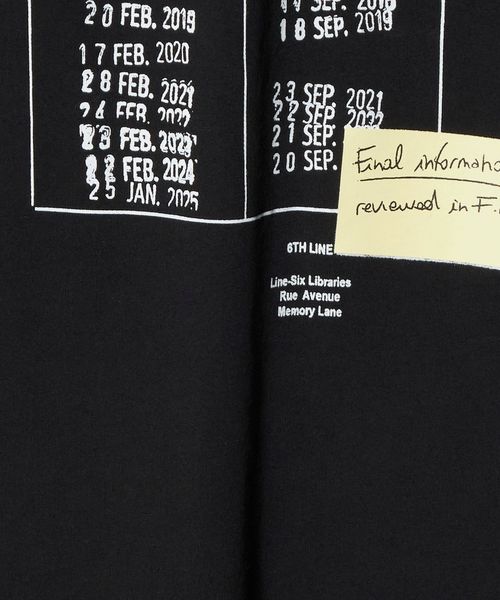 20 FEB. 2019
17 FEB. 2020
28 FEB. 2021
24 FEB. 2022
23 FEB. 2023
22 FEB. 2024
25 JAN. 2025
SEP.
18 SEP. 2019
23 SEP. 2021
22 SEP. 2022
21 SEP.
20 SEP.
Final informatio
reviewed in F.
6TH LINE
Line-Six Libraries
Rue Avenue
Memory Lane